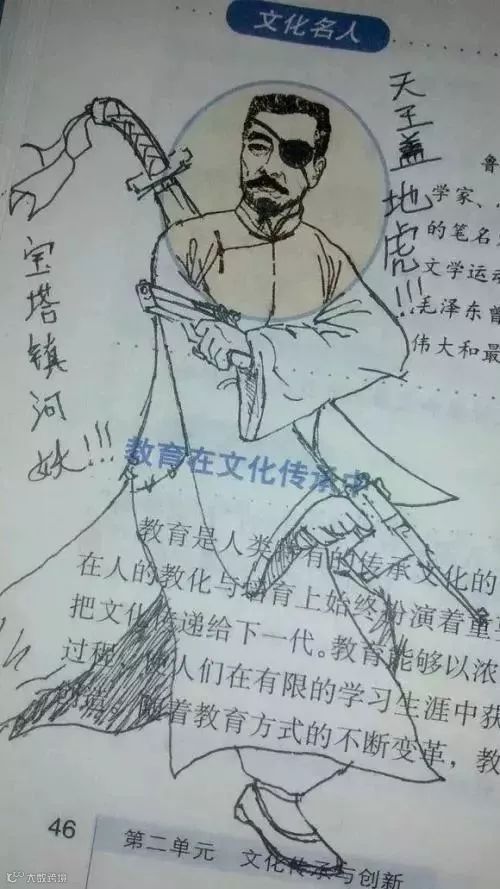 文化名人
天王盖地虎!!!
宝塔镇河妖!!!
鲁
学家、
的笔名
文学运动
毛泽东曾
伟大和最
教育在文化传承中
教育是人类特有的传承文化的
在人的教化与培育上始终扮演着重
把文化传递给下一代。教育能够以浓
过程,使人们在有限的学习生涯中获
着教育方式的不断变革,教
46
第二单元 文化传承与创新
大数跨境